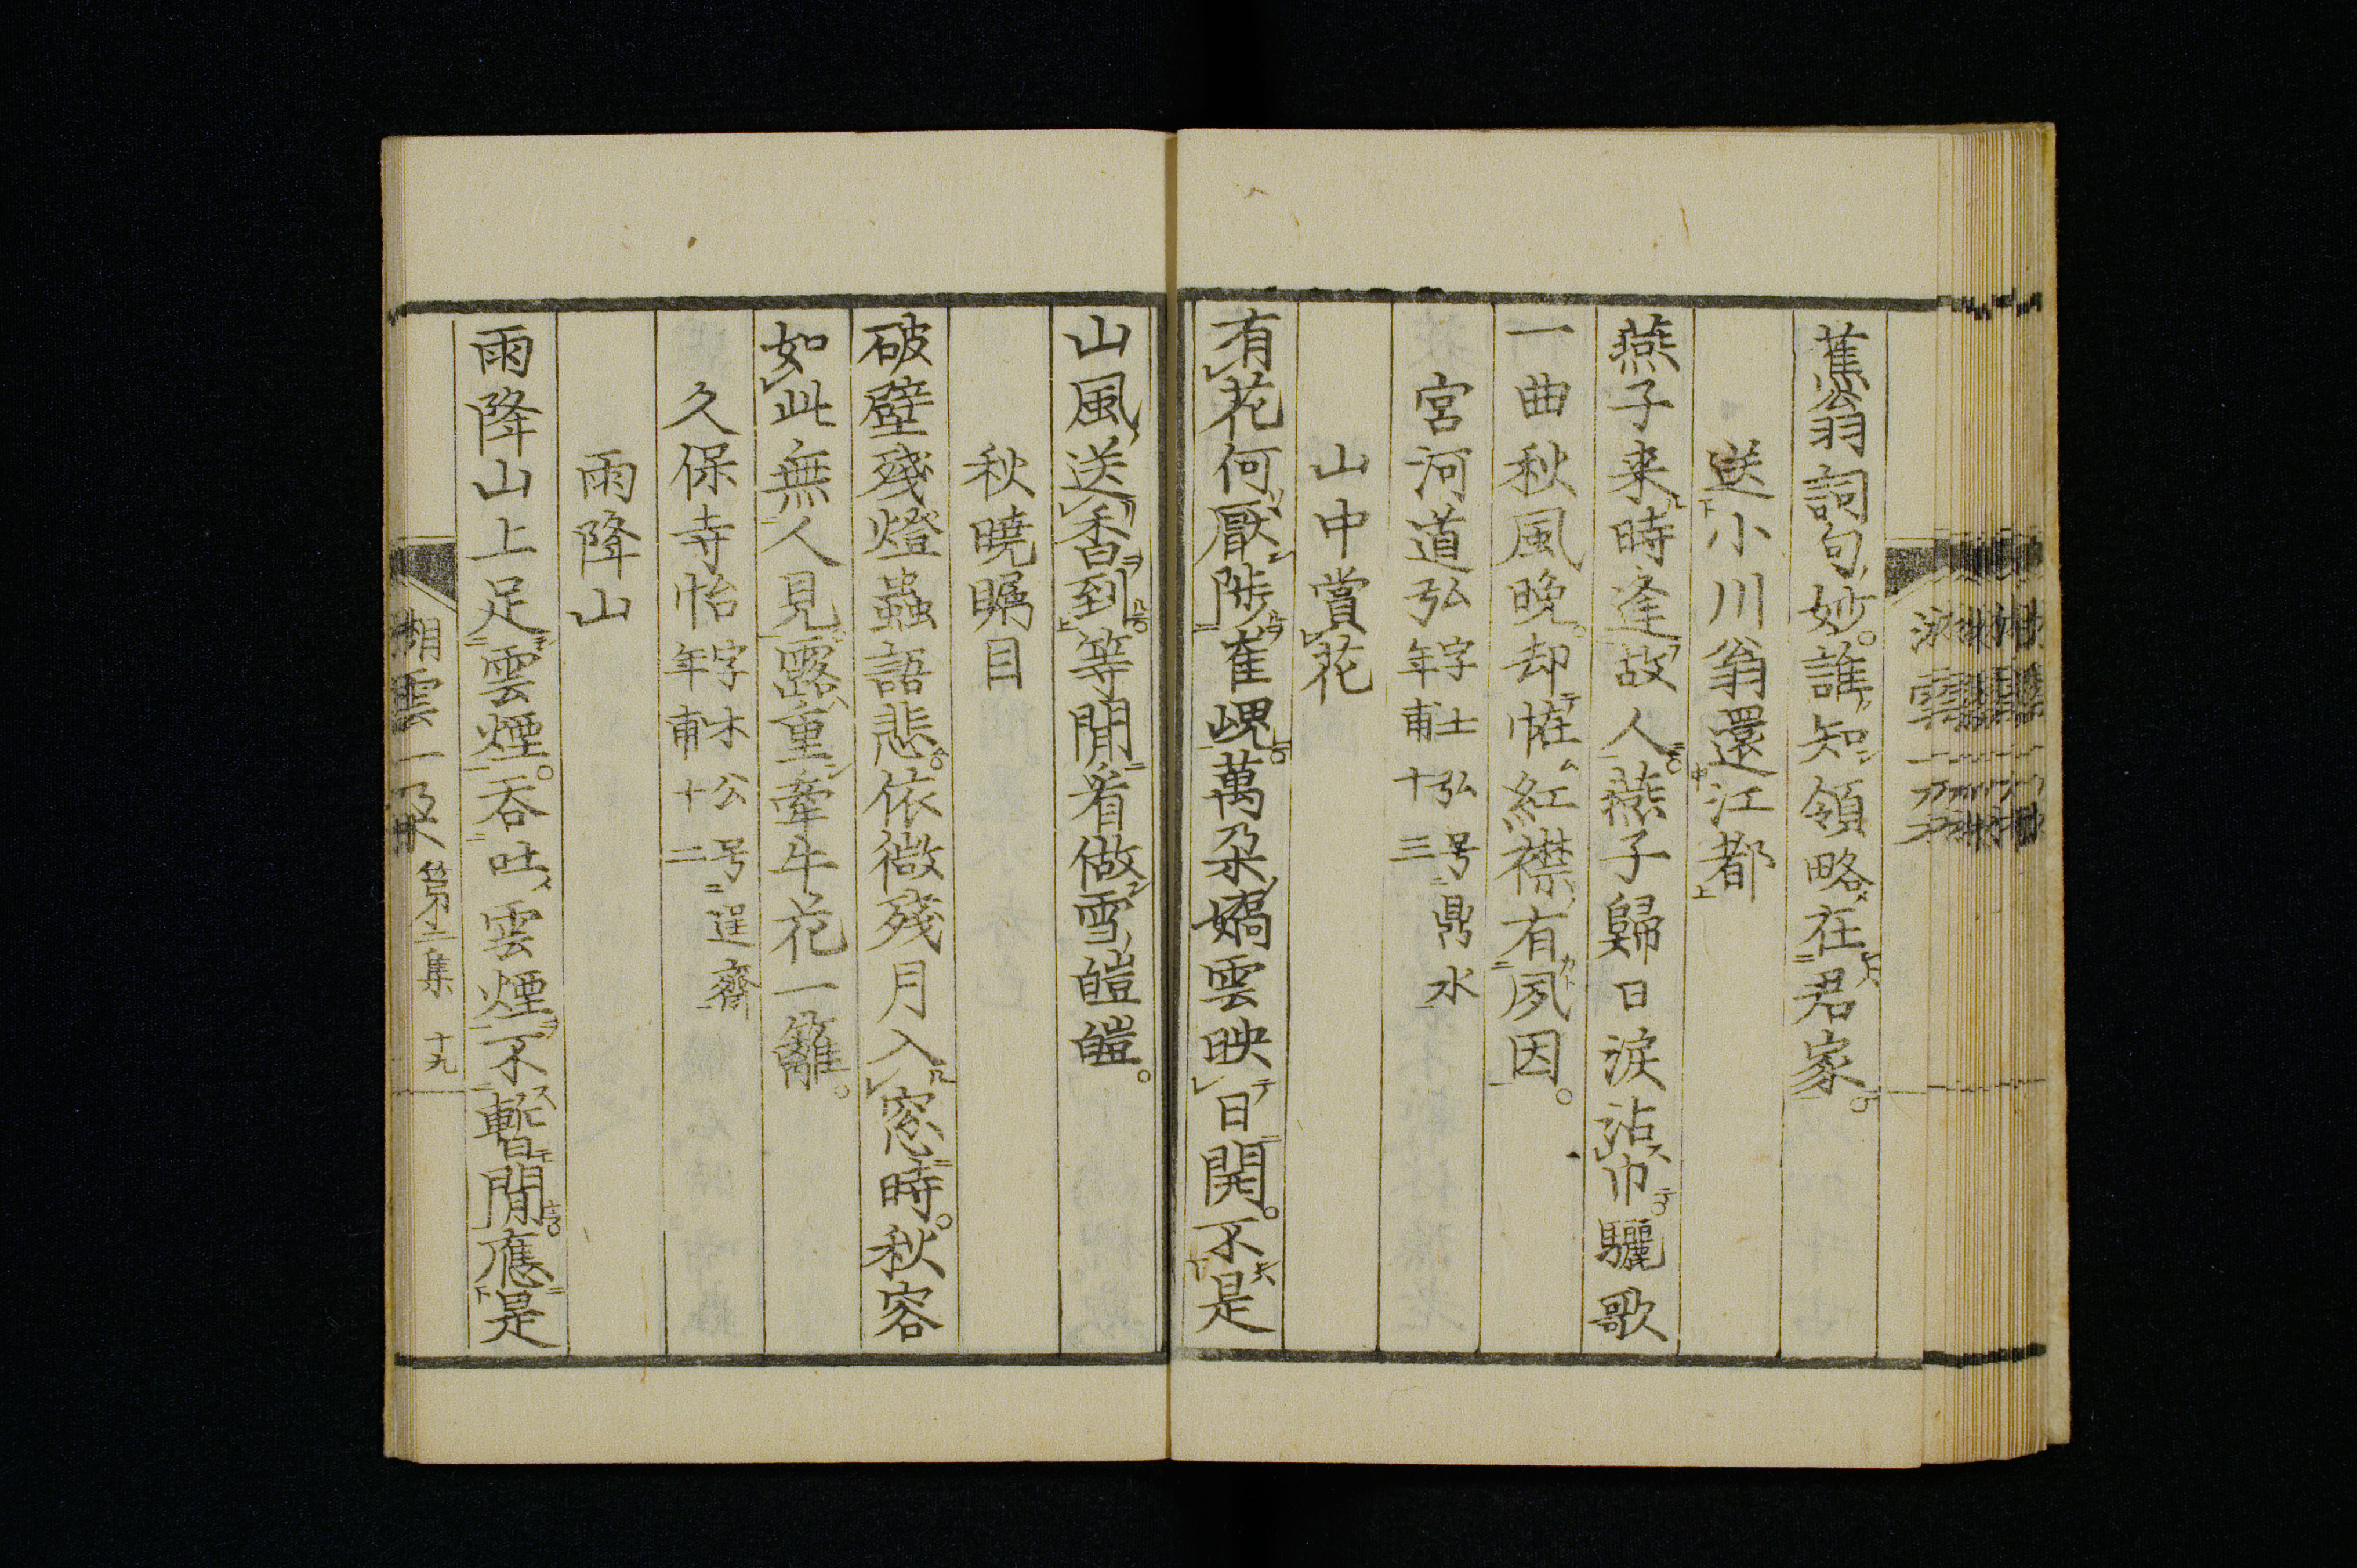 蕉翁詞句妙。誰知領略在君家。
送小川翁還江都
燕子来時逢故人。燕子歸日涙沾巾。驪歌
一曲秋風晚。却慛紅襟有夙因。
宮河道弘字士弘号鼎水
年甫十三
山中賞花
有花何厭陟崔嵬。萬朶嬌雲映日開。不是
山風送香到。等閒看做雪皚皚。
秋曉矚目
破壁殘燈蟲語悲。依微殘月入窓時。秋容
如此無人見。露重牽牛花一籬。
久保寺怡字木公号逞齋
年甫十二
雨降山
雨降山上足雲煙。吞吐雲煙不暫閒。應是
湖雲一
第二集 十九